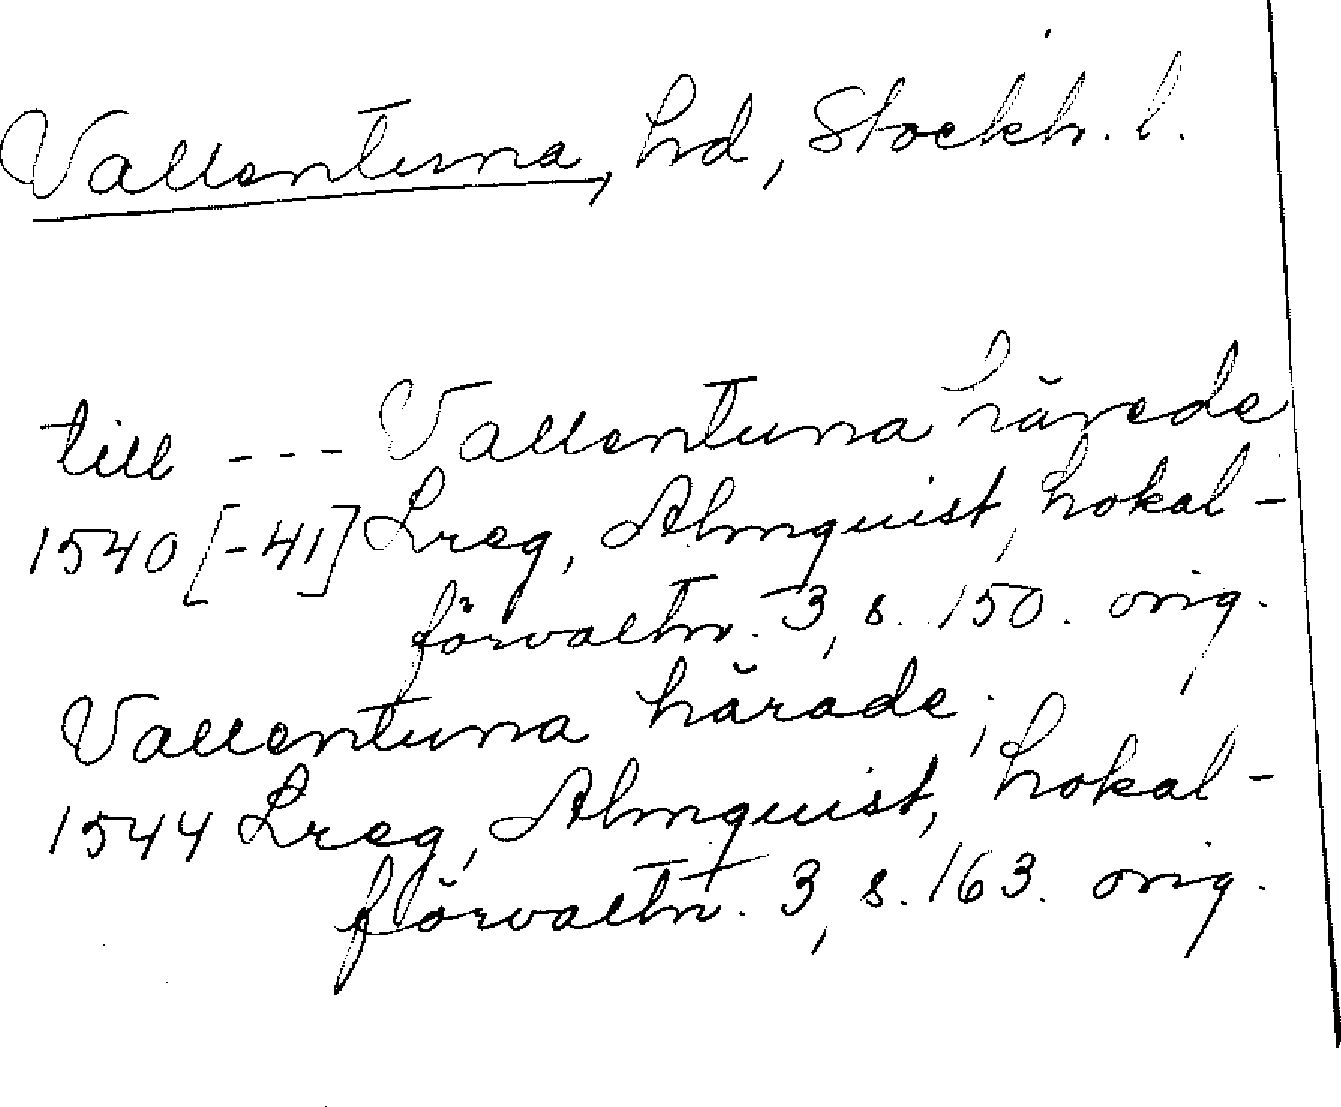 Vallentuna, hd, Stockh. l.
till --- Vallentuna härede
1540 [-41] Lreg, Almquist, Lokal-
förvaltn. 3, s. 150. orig.
Vallentuna härade;
1544 Lreg, Almquist, Lokal-
förvaltn. 3, s. 163. orig.